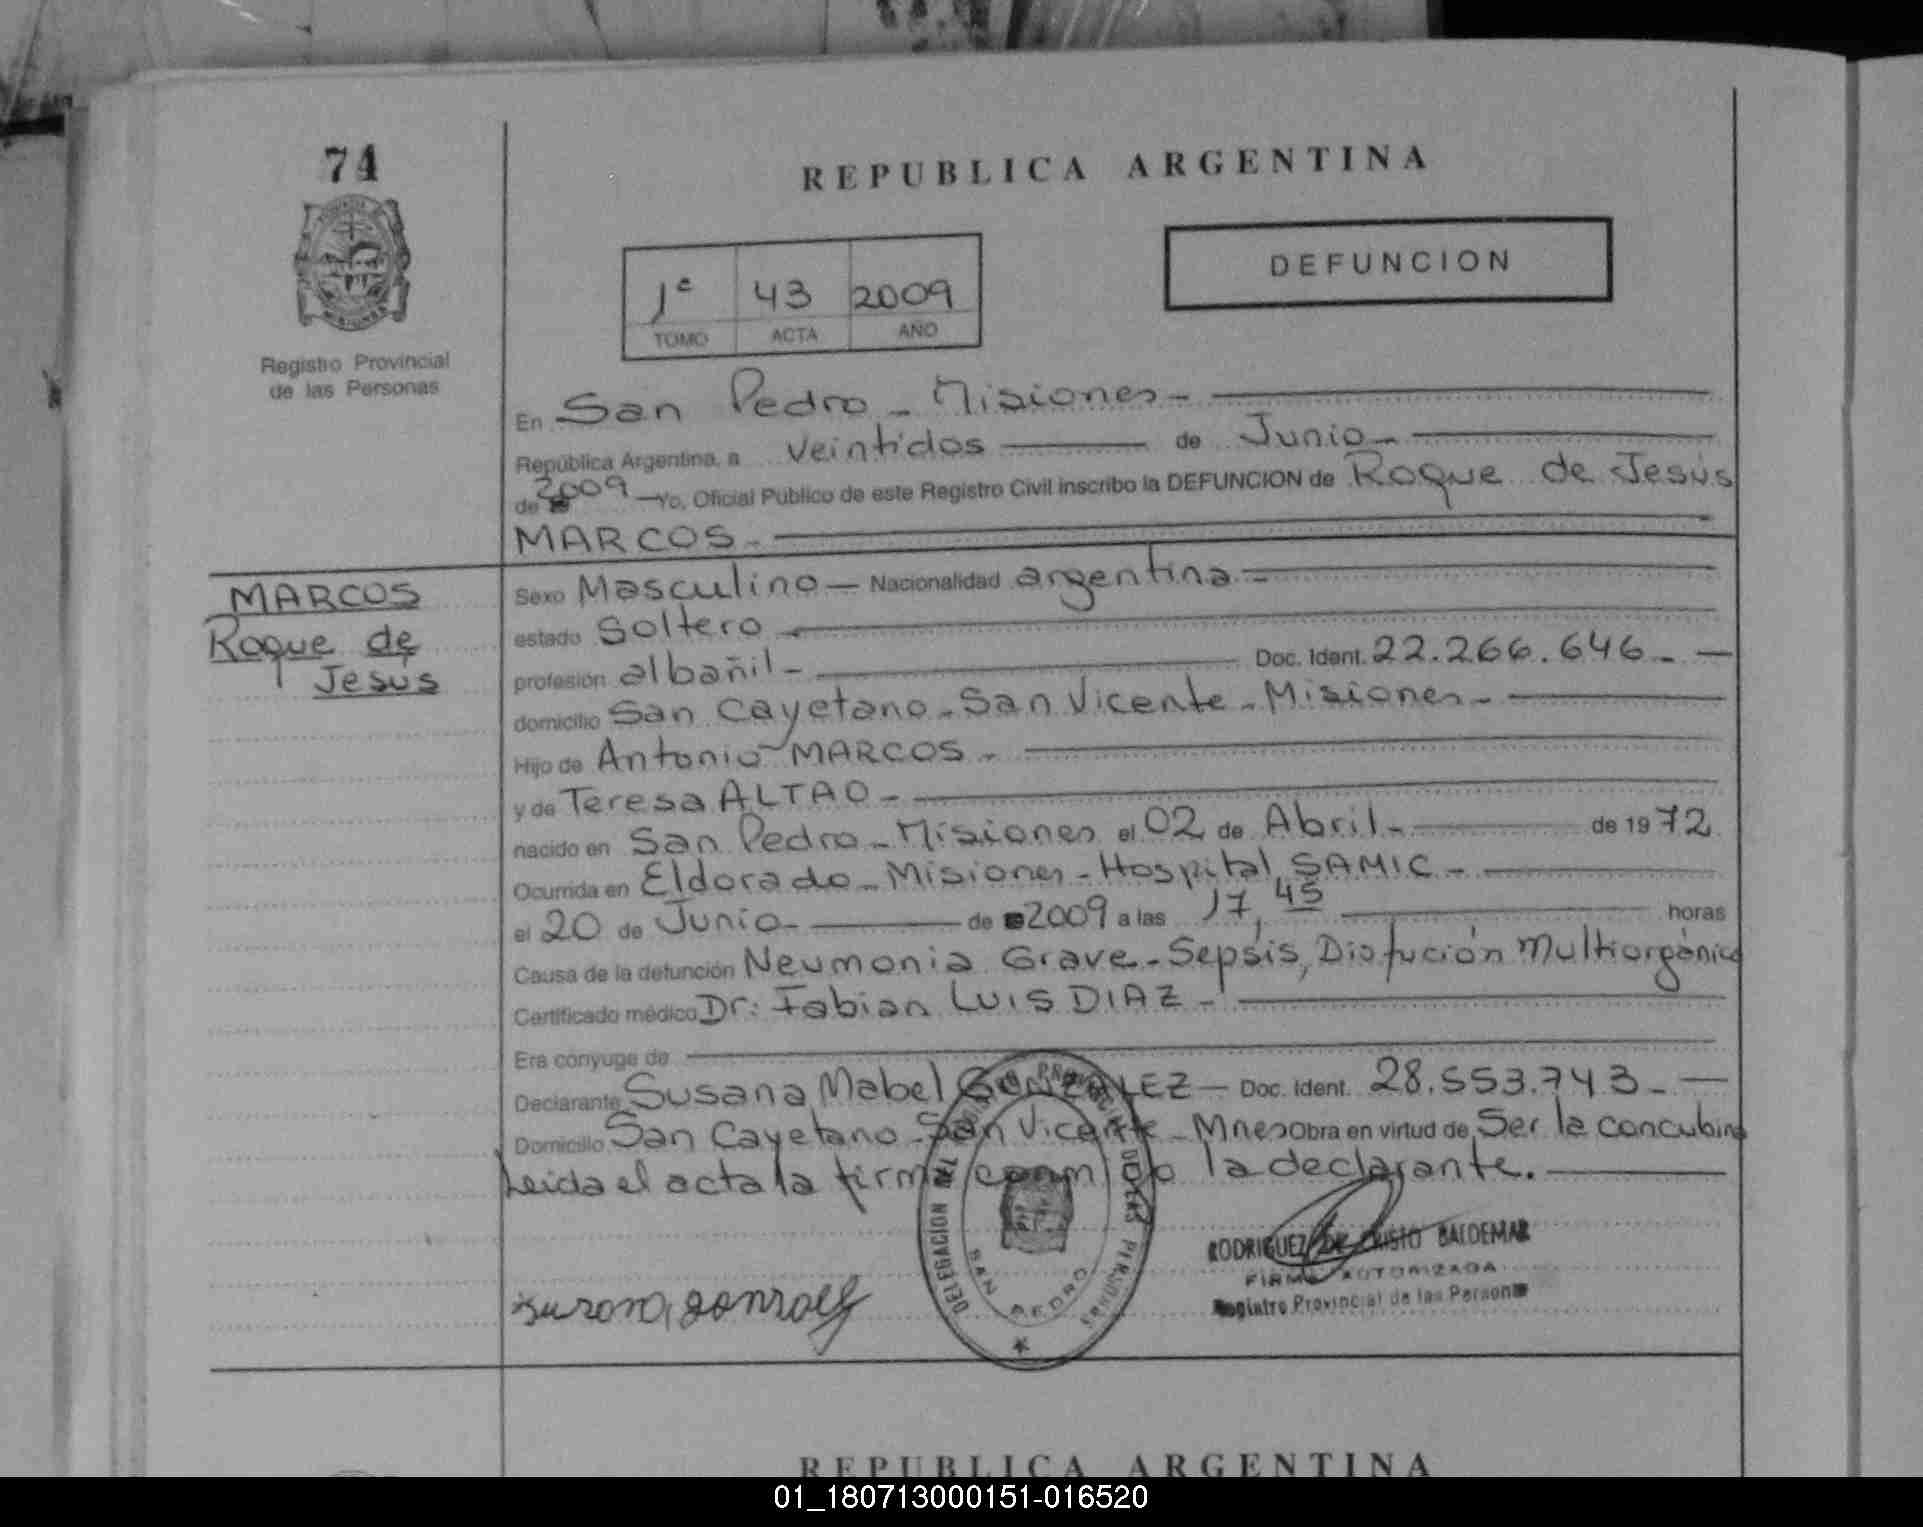 74
REPUBLICA ARGENTINA
DEFUNCION
1º 43 2009
TOMO ACTA AÑO
Registro Provincial
de las Personas
En San Pedro - Misiones -
República Argentina, a veintidos de Junio -
de 2009 Yo, Oficial Público de este Registro Civil inscribo la DEFUNCION de Roque de Jesús
MARCOS -
MARCOS
Roque de
Jesús
Sexo Masculino - Nacionalidad argentina -
estado Soltero -
profesión albañil - Doc. Ident. 22.266.646 -
domicilio San Cayetano - San Vicente - Misiones -
Hijo de Antonio MARCOS -
y de Teresa ALTAO -
nacido en San Pedro - Misiones el 02 de Abril - de 1972
Ocurrida en Eldorado - Misiones - Hospital SAMIC -
el 20 de Junio - de 2009 a las 17,45 horas
Causa de la defunción Neumonia Grave - Sepsis, Disfución Multiorgánica
Certificado médico Dr: Fabian LUIS DIAZ -
Era cónyuge de
Declarante Susana Mabel GONZALEZ - Doc. Ident. 28.553.743 -
Domicilio San Cayetano - San Vicente - Mnes Obra en virtud de Ser la concubina
Leida el acta la firma conmigo la declarante.
DELEGACION DEL PROVINCIAL DE LAS PERSONAS
SAN PEDRO
RODRIGUEZ DE CRISTO BALDEMAR
FIRMA AUTORIZADA
Registro Provincial de las Personas
Susana gonzalez
REPUBLICA ARGENTINA
01_180713000151-016520